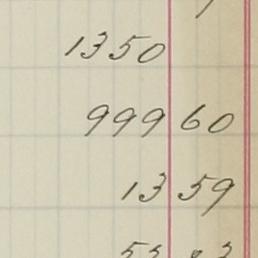 1350
999 60
13 59